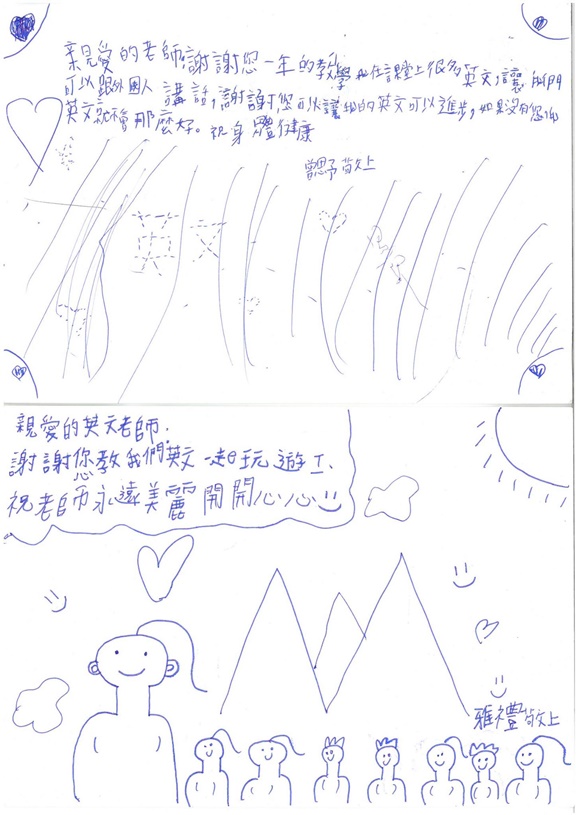 親愛的老師謝謝您一年的教學我在課堂上很多英文,讓我們
可以跟外國人講話,謝謝您可以讓我的英文可以進步,如果沒有您
英文就會那麼好。祝身體健康
曾思予敬上
親愛的英文老師:
謝謝您教我們英文一起玩遊
祝老師永遠美麗開開心心
雅禮敬上